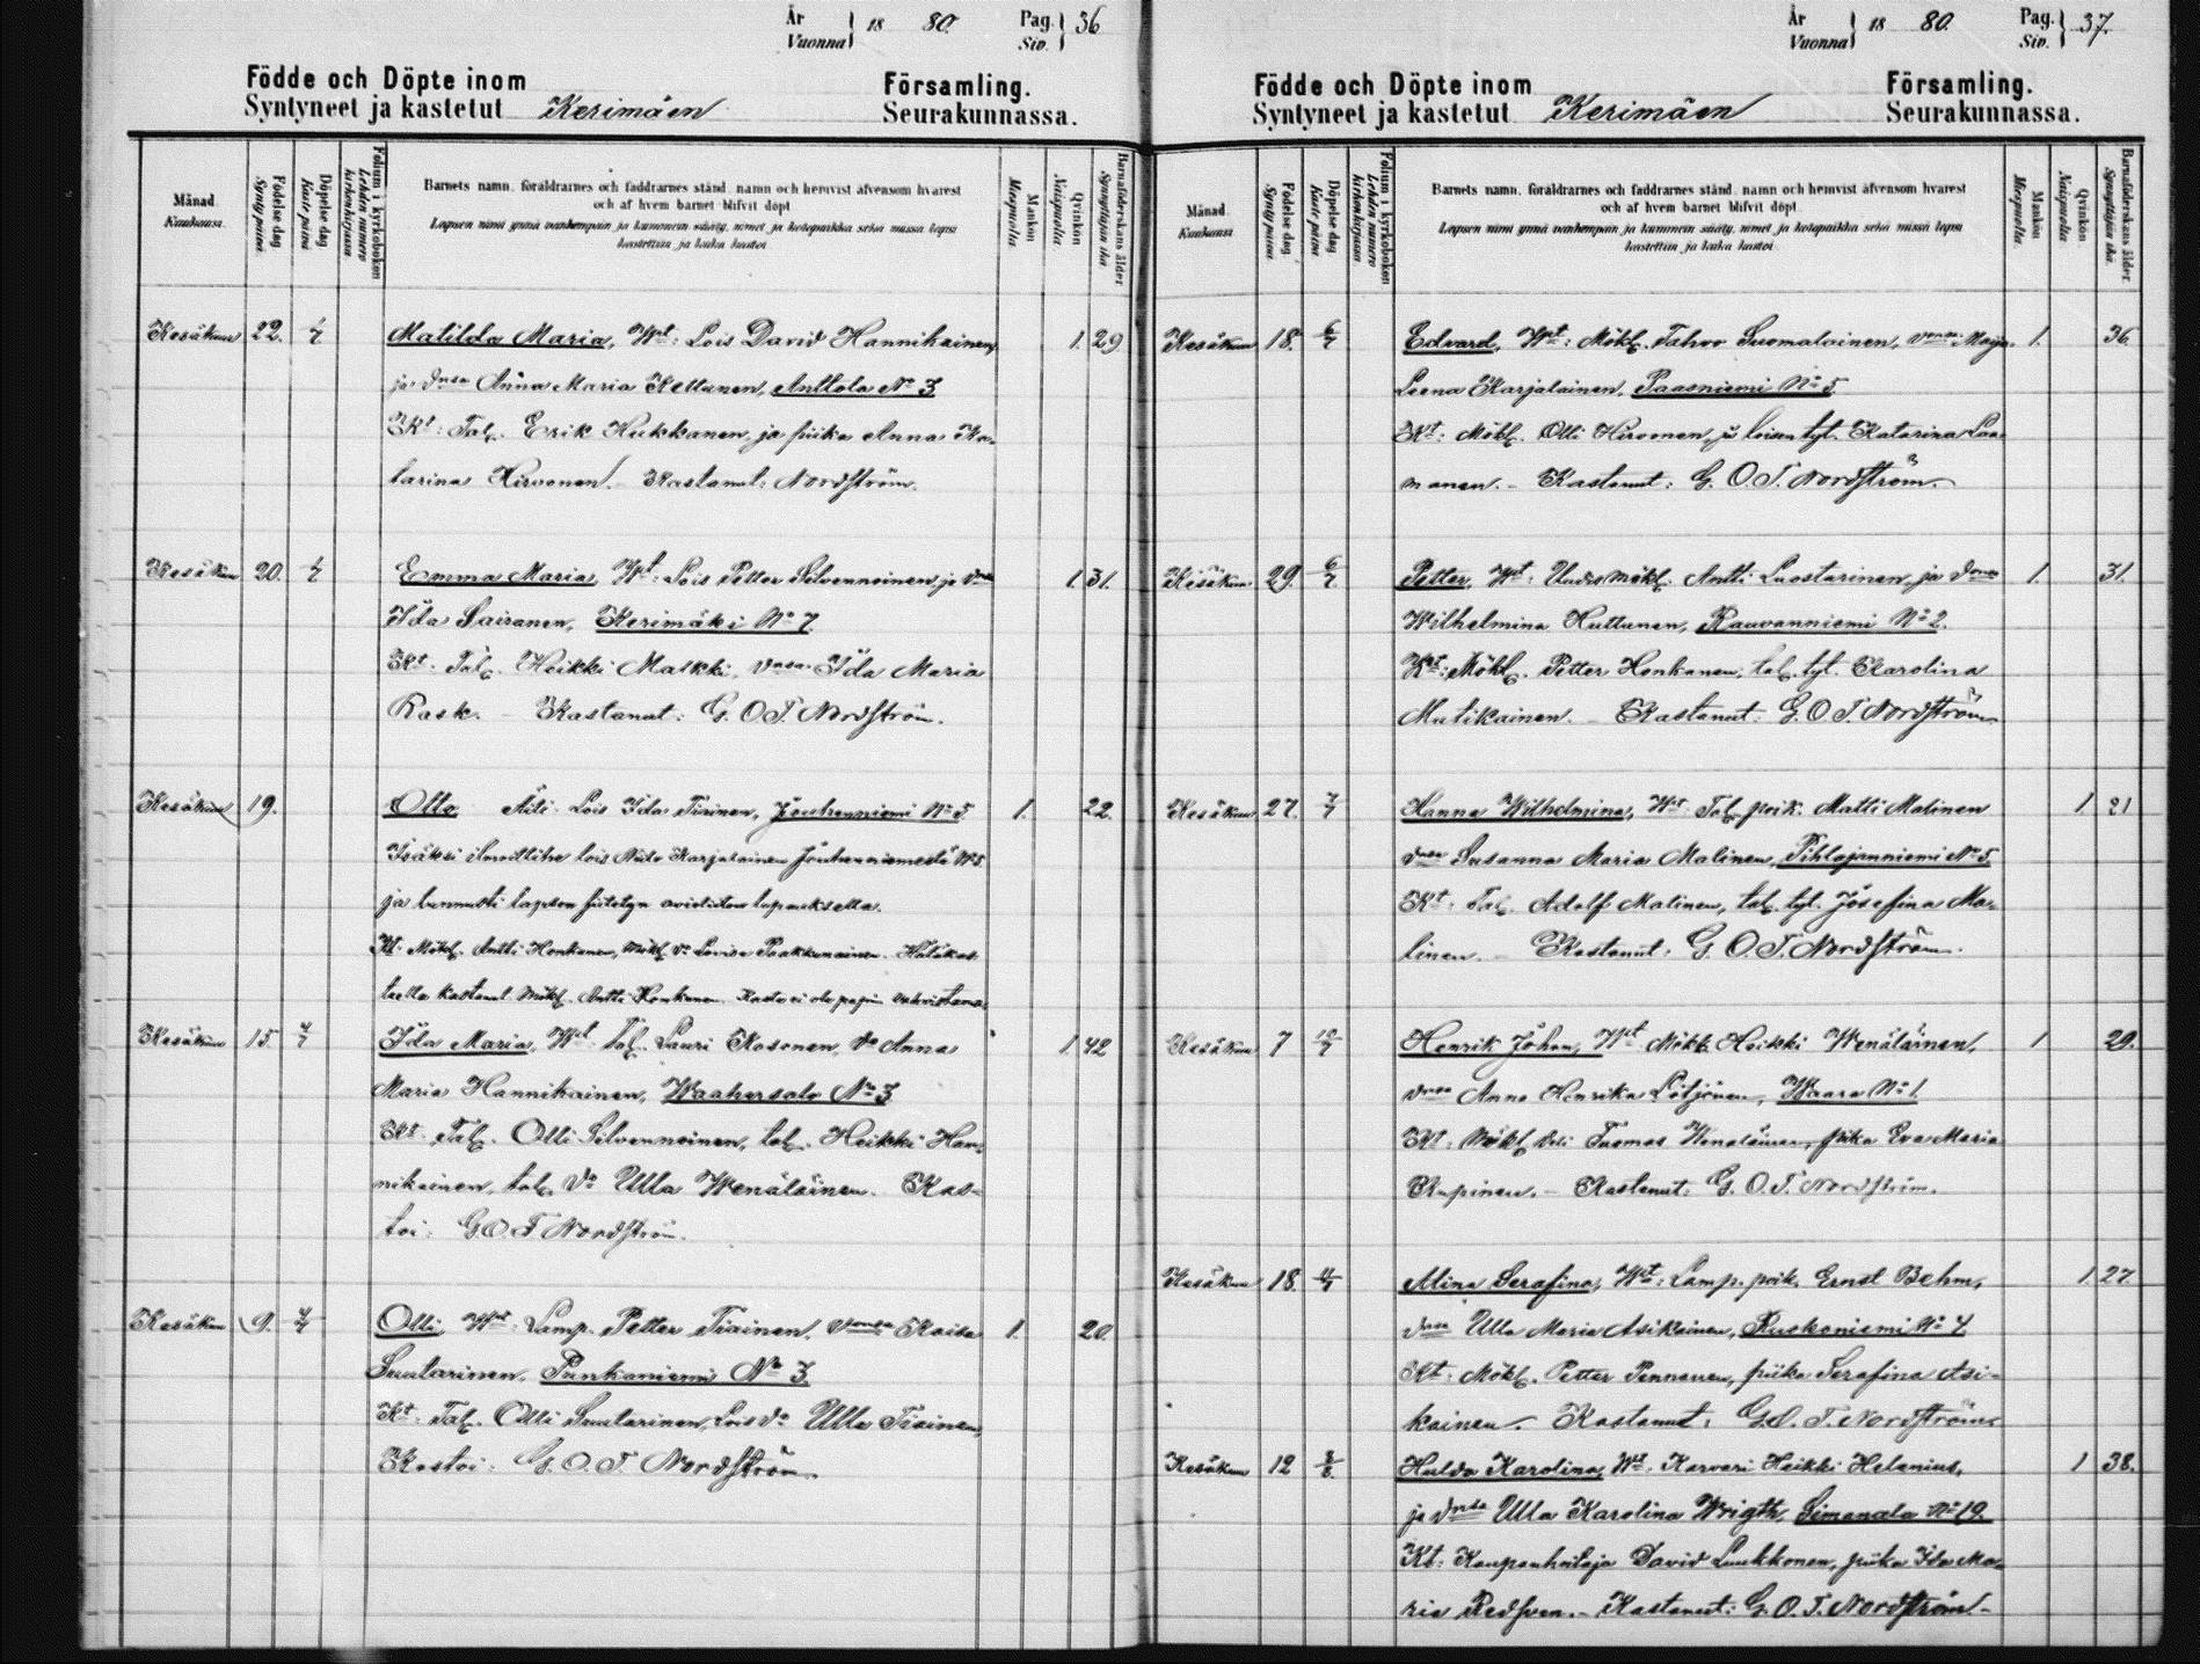 År
Vuonna } 18 80. Pag. Siv. } 36
Födde och Döpte inom Församling.
Syntyneet ja kastetut Kerimäen Seurakunnassa.
Månad Kuukausi
Födelse dag Synty päivä
Döpelse dag Kaste päivä
Folium i kyrkoboken Lehden numero kirkonkirjassa
Barnets namn, föräldrarnes och faddrarnes stånd, namn och hemvist äfvensom hvarest
och af hvem barnet blifvit döpt
Lapsen nimi ynnä vanhempain ja kummein sääty, nimet ja kotopaikka sekä missä lapsi
kastettiin ja kuka kastoi
Mankön Miespuolia
Qvinkön Naispuolia
Barnaföderskans ålder Synnyttäjän ikä
Kesäkuu 22. Matilda Maria, Wt: Lois David Hannikainen 1. 29
ja Vnsa Anna Maria Kettunen, Anttola No 3
Kt: Tal. Erik Hukkanen, ja piika Anna Ka-
tarina Hirvonen. Kastanut: Nordström.
Kesäkuu 20. Emma Maria, Wt: Lois Petter Silvennoinen ja Vnsa 1. 31.
Ida Sairanen, Kerimäki No 7.
Kt. Tal. Heikki Maskki, Vnsa Ida Maria
Rask. – Kastanut: G. O. T. Nordström.
Kesäkuu 19. Otto Äiti Lois Ida Tiainen, Jouhenniemi No 5 1. 22.
Isäksi ilmoittihe lois Karjalainen Jouhenniemestä No 5
ja tunnusti lapsen
Kt. Mökl. Antti Honkanen, Mökl. Va Lovisa Paakkunainen. Hätäkas-
teella kastanut Mökl. Antti Honkanen.
Kesäkuu 15. 4/7 Ida Maria, Wt tal. Lauri Kosonen, Va Anna 1. 42
Maria Hannikainen, Waahersalo No 3
Kt. Tal. Olli Silvennoinen, tal. Heikki Han-
nikainen, tal. Va Ulla Wenäläinen. Kas-
toi: G O. T Nordström.
Kesäkuu 9. 4/7 Olli, Wt: Lamp. Petter Tiainen, Vaimonsa Kaisa 1. 20.
Suutarinen, Punkaniemi No 3.
Kt. Tal. Olli Suutarinen, Lois Va Ulla Tiainen,
Kastoi: G. O. T. Nordström.
År
Vuonna } 18 80. Pag. Siv. } 37.
Födde och Döpte inom Församling.
Syntyneet ja kastetut Kerimäen Seurakunnassa.
Månad Kuukausi
Födelse dag Synty päivä
Döpelse dag Kaste päivä
Folium i kyrkoboken Lehden numero kirkonkirjassa
Barnets namn, föräldrarnes och faddrarnes stånd, namn och hemvist äfvensom hvarest
och af hvem barnet blifvit döpt.
Lapsen nimi ynnä vanhempain ja kummein sääty, nimet ja kotopaikka sekä missä lapsi
kastettiin ja kuka kastoi
Mankön Miespuolia
Qvinkön Naispuolia
Barnaföderskans ålder Synnyttäjän ikä
Kesäkuu 18. 6/7 Edvard, Wt: Mökl. Tahvo Suomalainen, Vnsa Maija 1. 36
Leena Karjalainen, Paasniemi No 5
Kt: Mökl. Olli Hirvonen, ja loisen tyt. Katarina Laa-
manen. – Kastanut: G. O. T. Nordström.
Kesäkuu 29. 6/7 Petter, Wt: Uudismökl. Antti Luostarinen, ja Vnsa 1. 31.
Wilhelmina Huttunen, Rauvanniemi No 2.
Kt: Mökl. Petter Honkanen, tal. tyt. Karolina
Mutikainen. – Kastanut: G. O. T. Nordström
Kesäkuu 27. 7/7 Hanna Wilhelmina, Wt Tal. poik. Matti Malinen 1. 21
Vnsa Susanna Maria Malinen, Pihlajanniemi No 5
Kt. Tal. Adolf Malinen, tal. tyt. Josefina Ma-
linen. – Kastanut: G. O. T. Nordström.
Kesäkuu 7 10/7 Henrik Johan, Wt Mökl. Heikki Wenäläinen, 1 29.
Vnsa Anna Henrika Lötjönen, Waara No 1.
Kt. Mökl. veli Tuomas Wenäläinen, piika Eva Maria
Rupinen. – Kastanut: G. O. T. Nordström.
Kesäkuu 18. 11/7 Mina Serafina, Wt: Lamp. poik. Ernst Behm, 1. 27
Vnsa Ulla Maria Asikainen, Ruokoniemi No 4
Kt: Mökl. Petter Pennanen, piika Serafina Asi-
kainen. Kastanut: G. O. T. Nordström.
Kesäkuu 12 8/8. Hulda Karolina, Wt. Karvari Heikki Helenius, 1 38.
ja Vnsa Ulla Karolina Wrigth, Simanala No 19.
Kt: Kaupanhoitaja David Luukkonen, piika Ida Ma-
ria Redsven. – Kastanut: G. O. T. Nordström. –